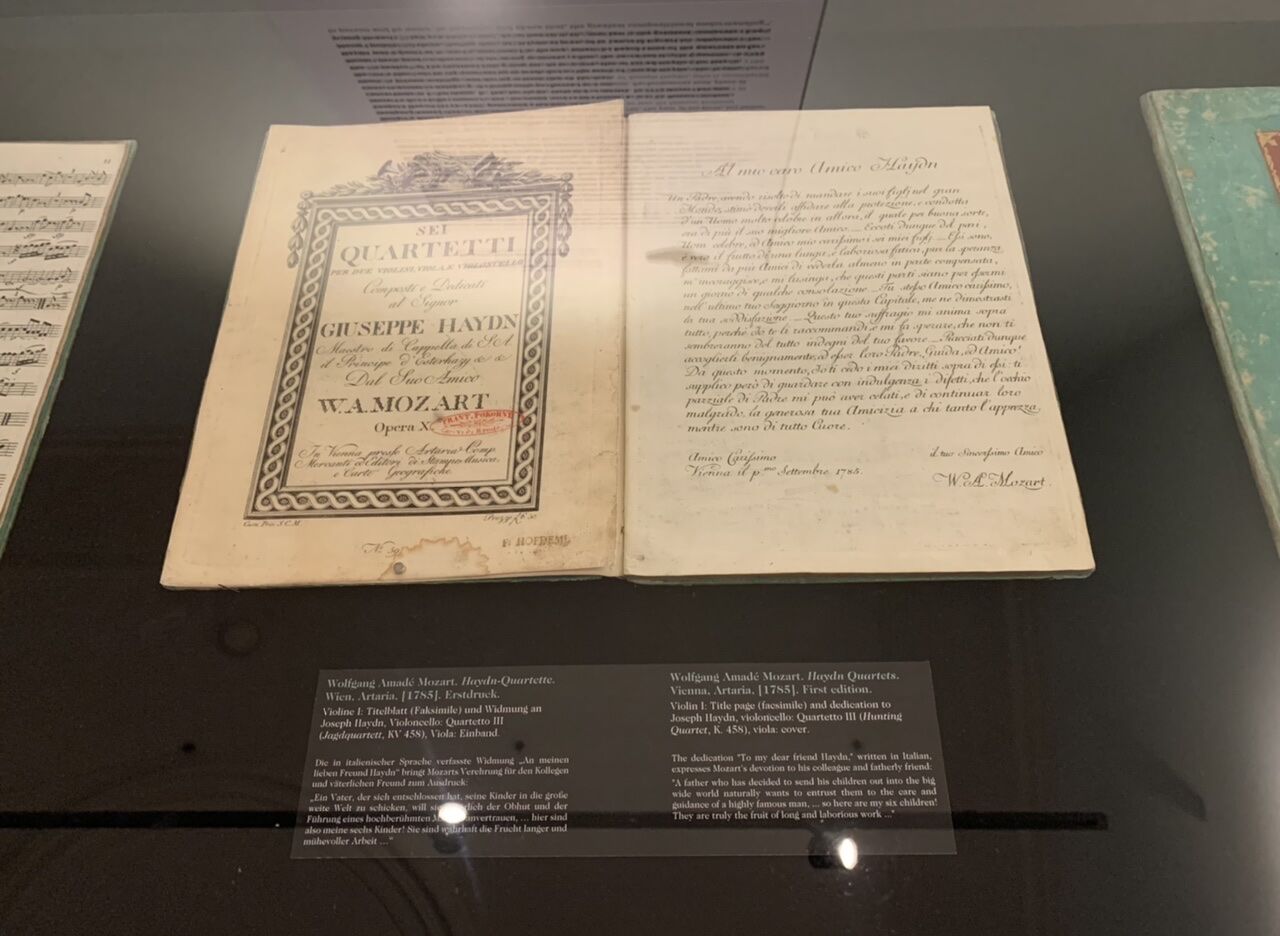 SEI
QUARTETTI
PER DUE VIOLINI, VIOLA, E VIOLONCELLO
Composti e Dedicati
al Signor
GIUSEPPE HAYDN
Maestro di Cappella di S.A.
il Principe d'Esterhazy &c &c
Dal Suo Amico
W.A. MOZART
Opera X
In Vienna presso Artaria Comp.
Mercanti ed Editori di Stampe Musica,
e Carte Geografiche
Prezzo
No. 59
Al mio caro Amico Haÿdn
Un Padre, avendo risolto di mandare i suoi figlj nel gran
Mondo, stimò doverli affidare alla protezione, e condotta
d'un Uomo molto celebre in allora, il quale per buona sorte,
era di più il suo migliore Amico. _ Eccoti dunque del pari,
Uom celebre, ed Amico mio carissimo i sei miei figlj. _ Essi sono,
è vero il frutto di una lunga, e laboriosa fatica, pur la speranza
fattami da più Amici di vederla almeno in parte compensata,
m'incoraggisce, e mi lusinga, che questi parti siano per essermi
un giorno di qualche consolazione. _ Tu stesso Amico carissimo,
nell'ultimo tuo Soggiorno in questa Capitale, me ne dimostrasti
la tua soddisfazione. _ Questo tuo suffragio mi anima sopra
tutto, perchè Io te li raccommandi, e mi fa sperare, che non ti
sembreranno del tutto indegni del tuo favore. _ Piacciati dunque
accoglierli benignamente, ed esser loro Padre, Guida, ed Amico!
Da questo momento, Io ti cedo i miei diritti sopra di essi: ti
supplico però di guardare con indulgenza i difetti, che l'occhio
parziale di Padre mi può aver celati, e di continuar loro
malgrado, la generosa tua Amicizia a chi tanto l'apprezza,
mentre sono di tutto Cuore.
Amico Carissimo
Vienna il pmo Settembre 1785.
il tuo Sincerissimo Amico
W. A. Mozart.
Wolfgang Amadé Mozart. Haydn-Quartette.
Wien, Artaria, [1785]. Erstdruck.
Violine I: Titelblatt (Faksimile) und Widmung an
Joseph Haydn, Violoncello: Quartetto III
(Jagdquartett, KV 458), Viola: Einband.
Die in italienischer Sprache verfasste Widmung „An meinen
lieben Freund Haydn“ bringt Mozarts Verehrung für den Kollegen
und väterlichen Freund zum Ausdruck:
„Ein Vater, der sich entschlossen hat, seine Kinder in die große
weite Welt zu schicken, will sie der Obhut und der
Führung eines hochberühmten anvertrauen, … hier sind
also meine sechs Kinder! Sie sind wahrhaft die Frucht langer und
mühevoller Arbeit …“
Wolfgang Amadé Mozart. Haydn Quartets.
Vienna, Artaria, [1785]. First edition.
Violin I: Title page (facsimile) and dedication to
Joseph Haydn, violoncello: Quartetto III (Hunting
Quartet, K. 458), viola: cover.
The dedication "To my dear friend Haydn," written in Italian,
expresses Mozart's devotion to his colleague and fatherly friend:
"A father who has decided to send his children out into the big
wide world naturally wants to entrust them to the care and
guidance of a highly famous man, ... so here are my six children!
They are truly the fruit of long and laborious work ..."